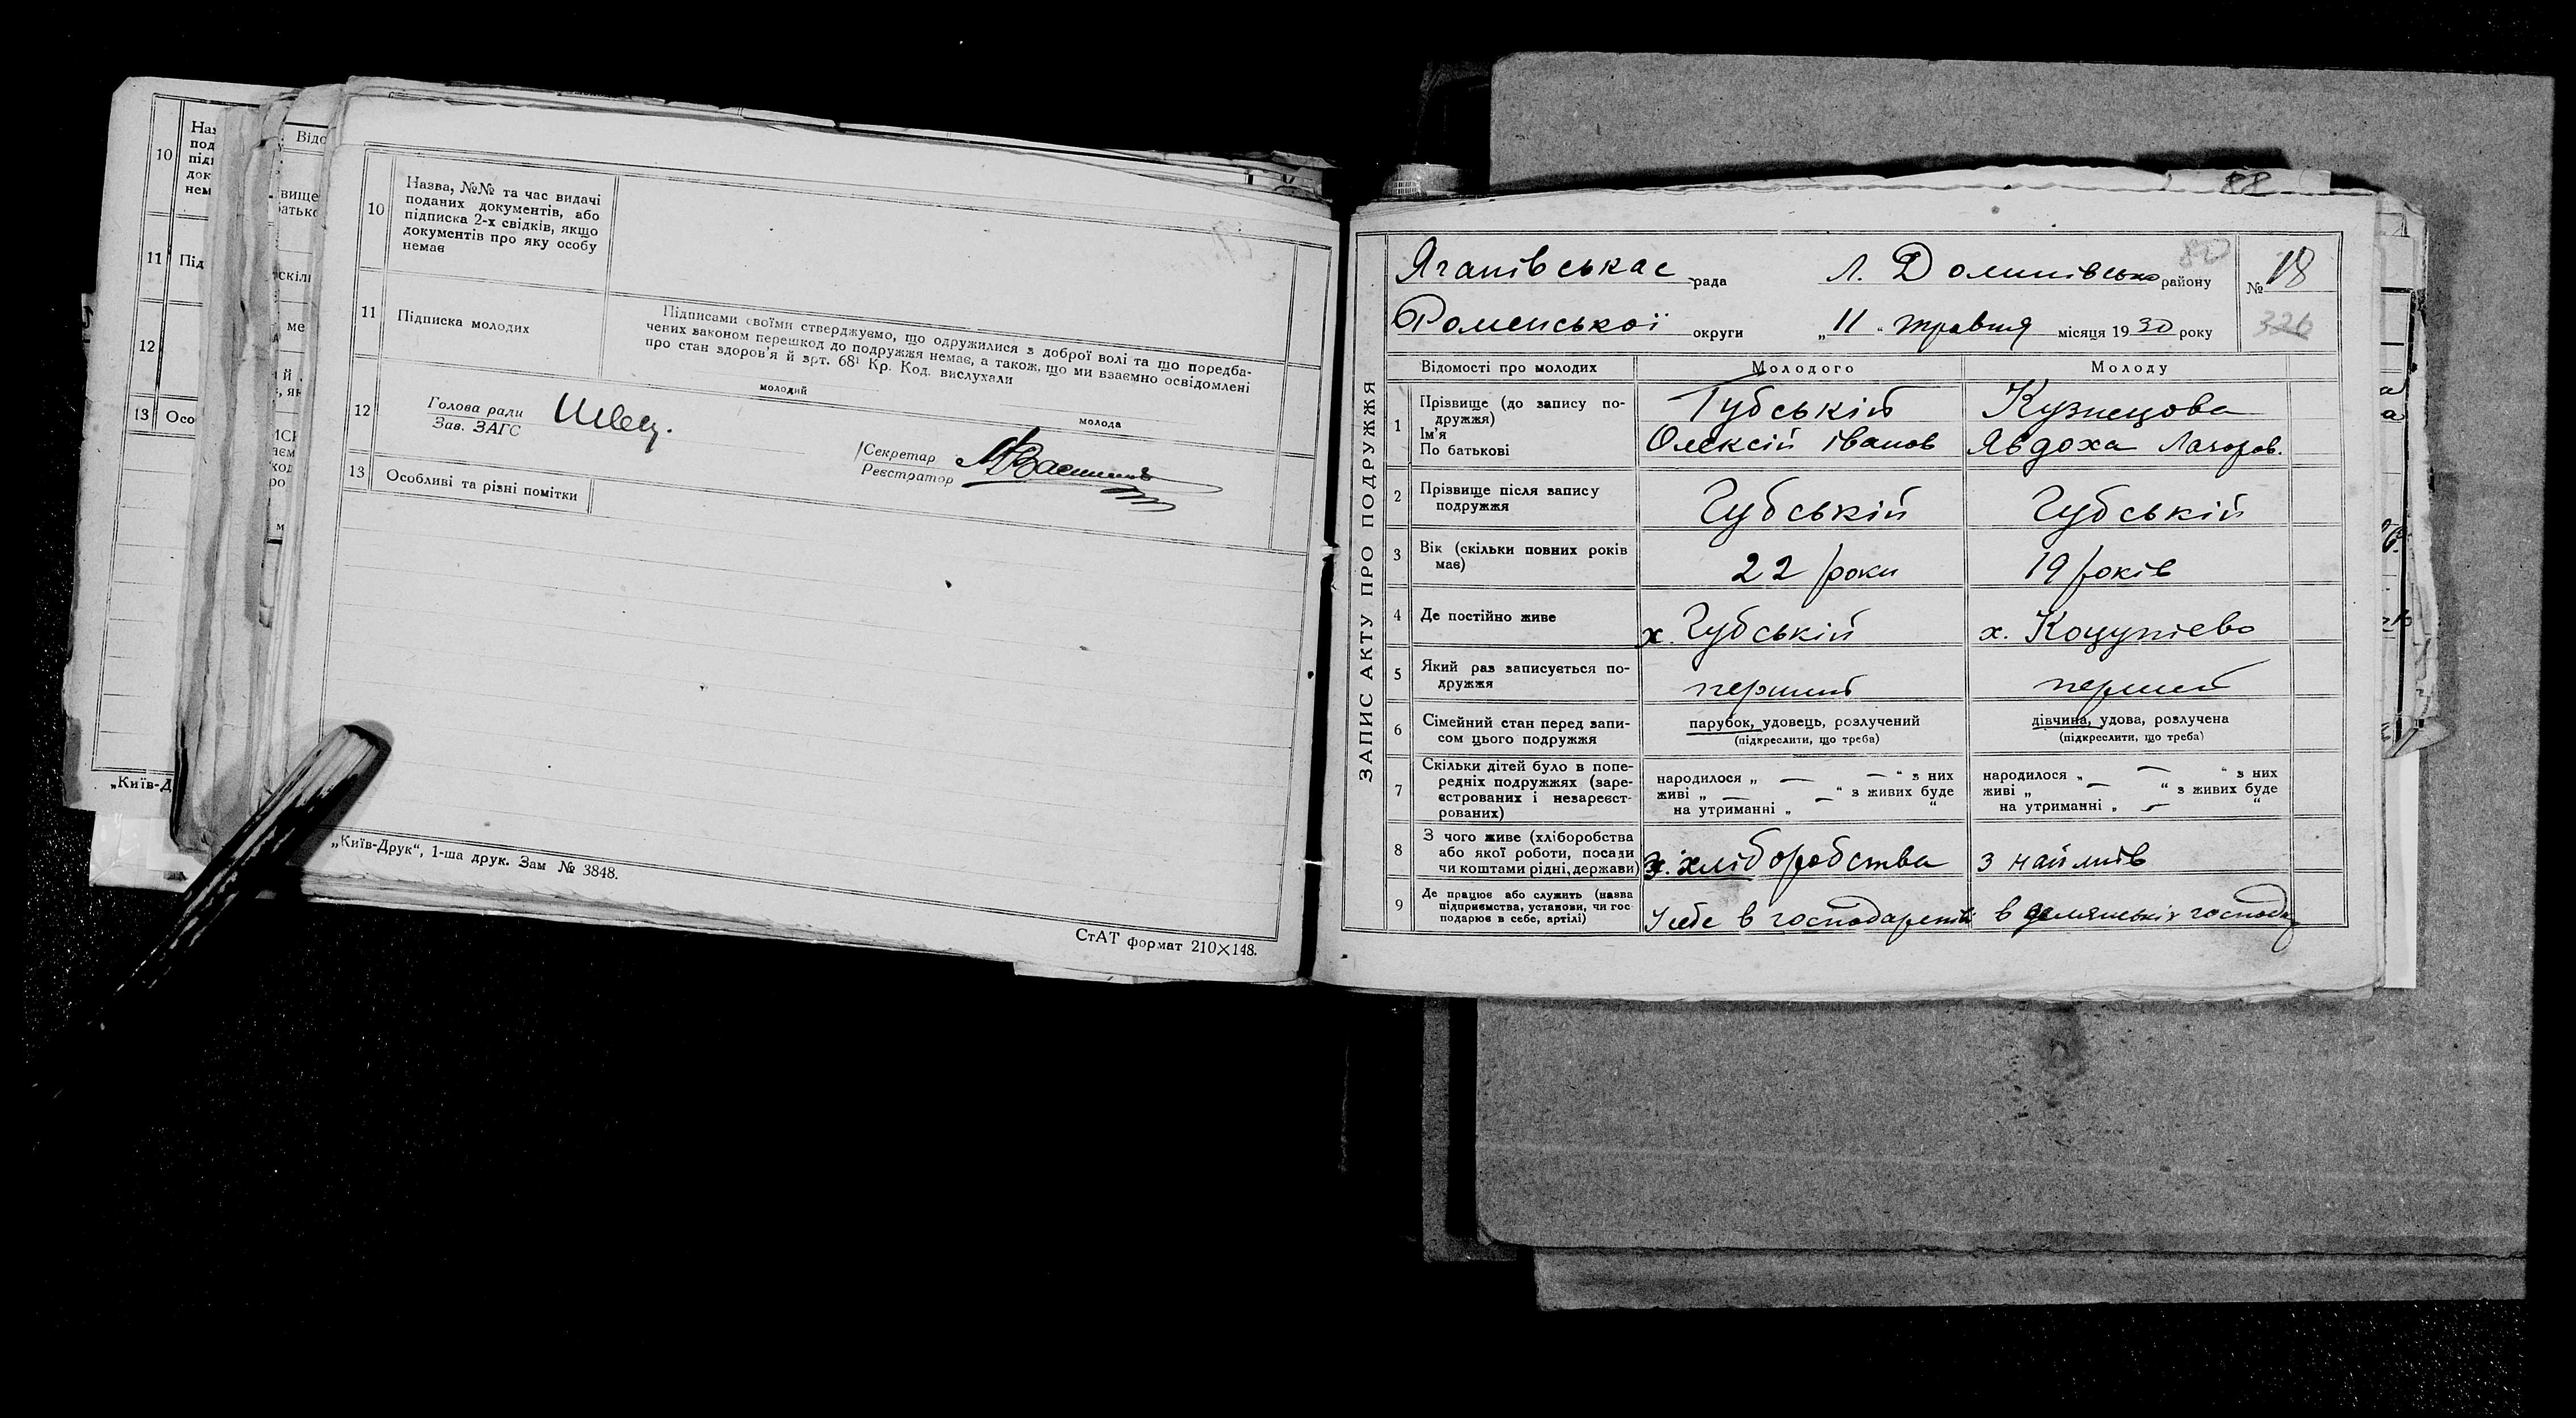 10
Наз
під
док
нем
11
Під
12
13
Осо
„Київ-Д
Відо
10
Назва, №№ та час видачі
поданих документів, або
підписка 2-х свідків, якщо
документів про яку особу
немає
11
Підписка молодих
Підписами своїми стверджуємо, що одружилися з доброї волі та що поредба-
чених законом перешкод до подружжя немає, а також, що ми взаємно освідомлені
про стан здоров'я й арт. 68¹ Кр. Код. вислухали
молодий
молода
12
Голова ради
Зав. ЗАГС
Швец.
Секретар
Реєстратор
13
Особливі та різні помітки
„Київ-Друк“, 1-ша друк. Зам № 3848.
СтАТ формат 210×148.
88
80
ЗАПИС АКТУ ПРО ПОДРУЖЖЯ
рада
району
№ 18
Роменської округи „11“ травня місяця 1930 року
326
Відомості про молодих
Молодого
Молоду
1
Прізвище (до запису по-
дружжя)
Ім'я
По батькові
Губській
Олексій Іванов
Кузнецова
Явдоха Лазоров.
2
Прізвище після запису
подружжя
Губській
Губській
3
Вік (скільки повних років
має)
22 роки
19 років
4
Де постійно живе
х. Губській
х.
5
Який раз записується по-
дружжя
перший
перший
6
Сімейний стан перед запи-
сом цього подружжя
парубок, удовець, розлучений
(підкреслити, що треба)
дівчина, удова, розлучена
(підкреслити, що треба)
7
Скільки дітей було в попе-
редніх подружжях (заре-
єстрованих і незареєст-
рованих)
народилося „ — — “ з них
живі „ — — “ з живих буде
на утриманні „ “
народилося „ — — “ з них
живі „ — “ з живих буде
на утриманні „ — “
8
З чого живе (хліборобства
або якої роботи, посади
чи коштами рідні, держави)
з. хліборобства
з наймів
9
Де працює або служить (назва
підприємства, установи, чи гос-
подарює в себе, артілі)
У себе в господарстві
в